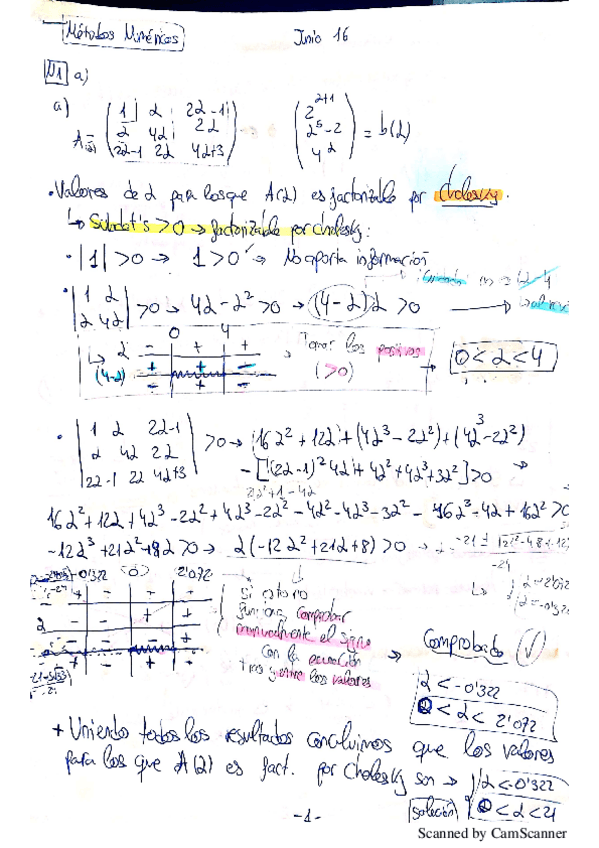 Métodos Numéricos Junio 16
Nº1 a)
a)
A(α) = ( 1 α 2α-1 ; α 4α 2α ; 2α-1 2α 4α+3 ) ( 2^(α+1) ; 2^5-2 ; 4^α ) = b(α)
• Valores de α para los que A(α) es factorizable por Cholesky.
↳ Subdet's > 0 → factorizable por Cholesky:
• |1| > 0 → 1 > 0 → No aporta información
• | 1 α ; α 4α | > 0 → 4α - α² > 0 → (4-α) α > 0
0 4
↳ α - + +
(4-α) + + -
- + -
Tomar los positivos (>0)
0 < α < 4
• | 1 α 2α-1 ; α 4α 2α ; 2α-1 2α 4α+3 | > 0 → (16α² + 12α) + (4α³ - 2α²) + (4α³ - 2α²)
- [(2α-1)² 4α + 4α² + 4α³ + 3α²] > 0
16α² + 12α + 4α³ - 2α² + 4α³ - 2α² - 4α² - 4α³ - 3α² - 16α³ - 4α + 16α² > 0
-12α³ + 21α² + 8α > 0 → α(-12α² + 21α + 8) > 0
-0'322 <0> 2'072
α - - + +
si esto no
funciona comprobar
manualmente el signo
con la ecuación
entre los valores
→ Comprobado
α < -0'322
0 < α < 2'072
+ Uniendo todos los resultados concluimos que los valores
para los que A(α) es fact. por Cholesky son → α < -0'322
solución 0 < α < 21
-1-
Scanned by CamScanner